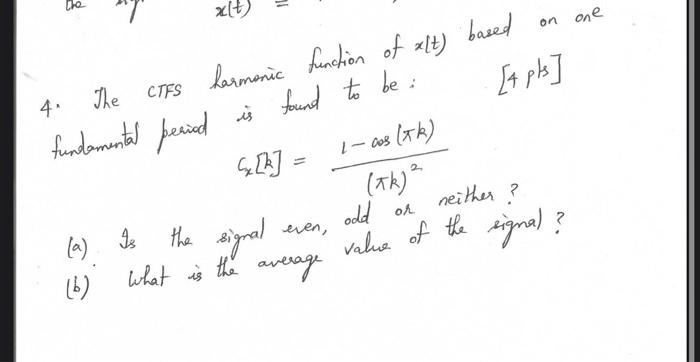 the
x(t) =
4. The CTFS harmonic function of x(t) based on one
fundamental period is found to be : [4 pts]
Cx[k] = 1 - cos (πk) / (πk)²
(a) Is the signal even, odd or neither ?
(b) What is the average value of the signal ?